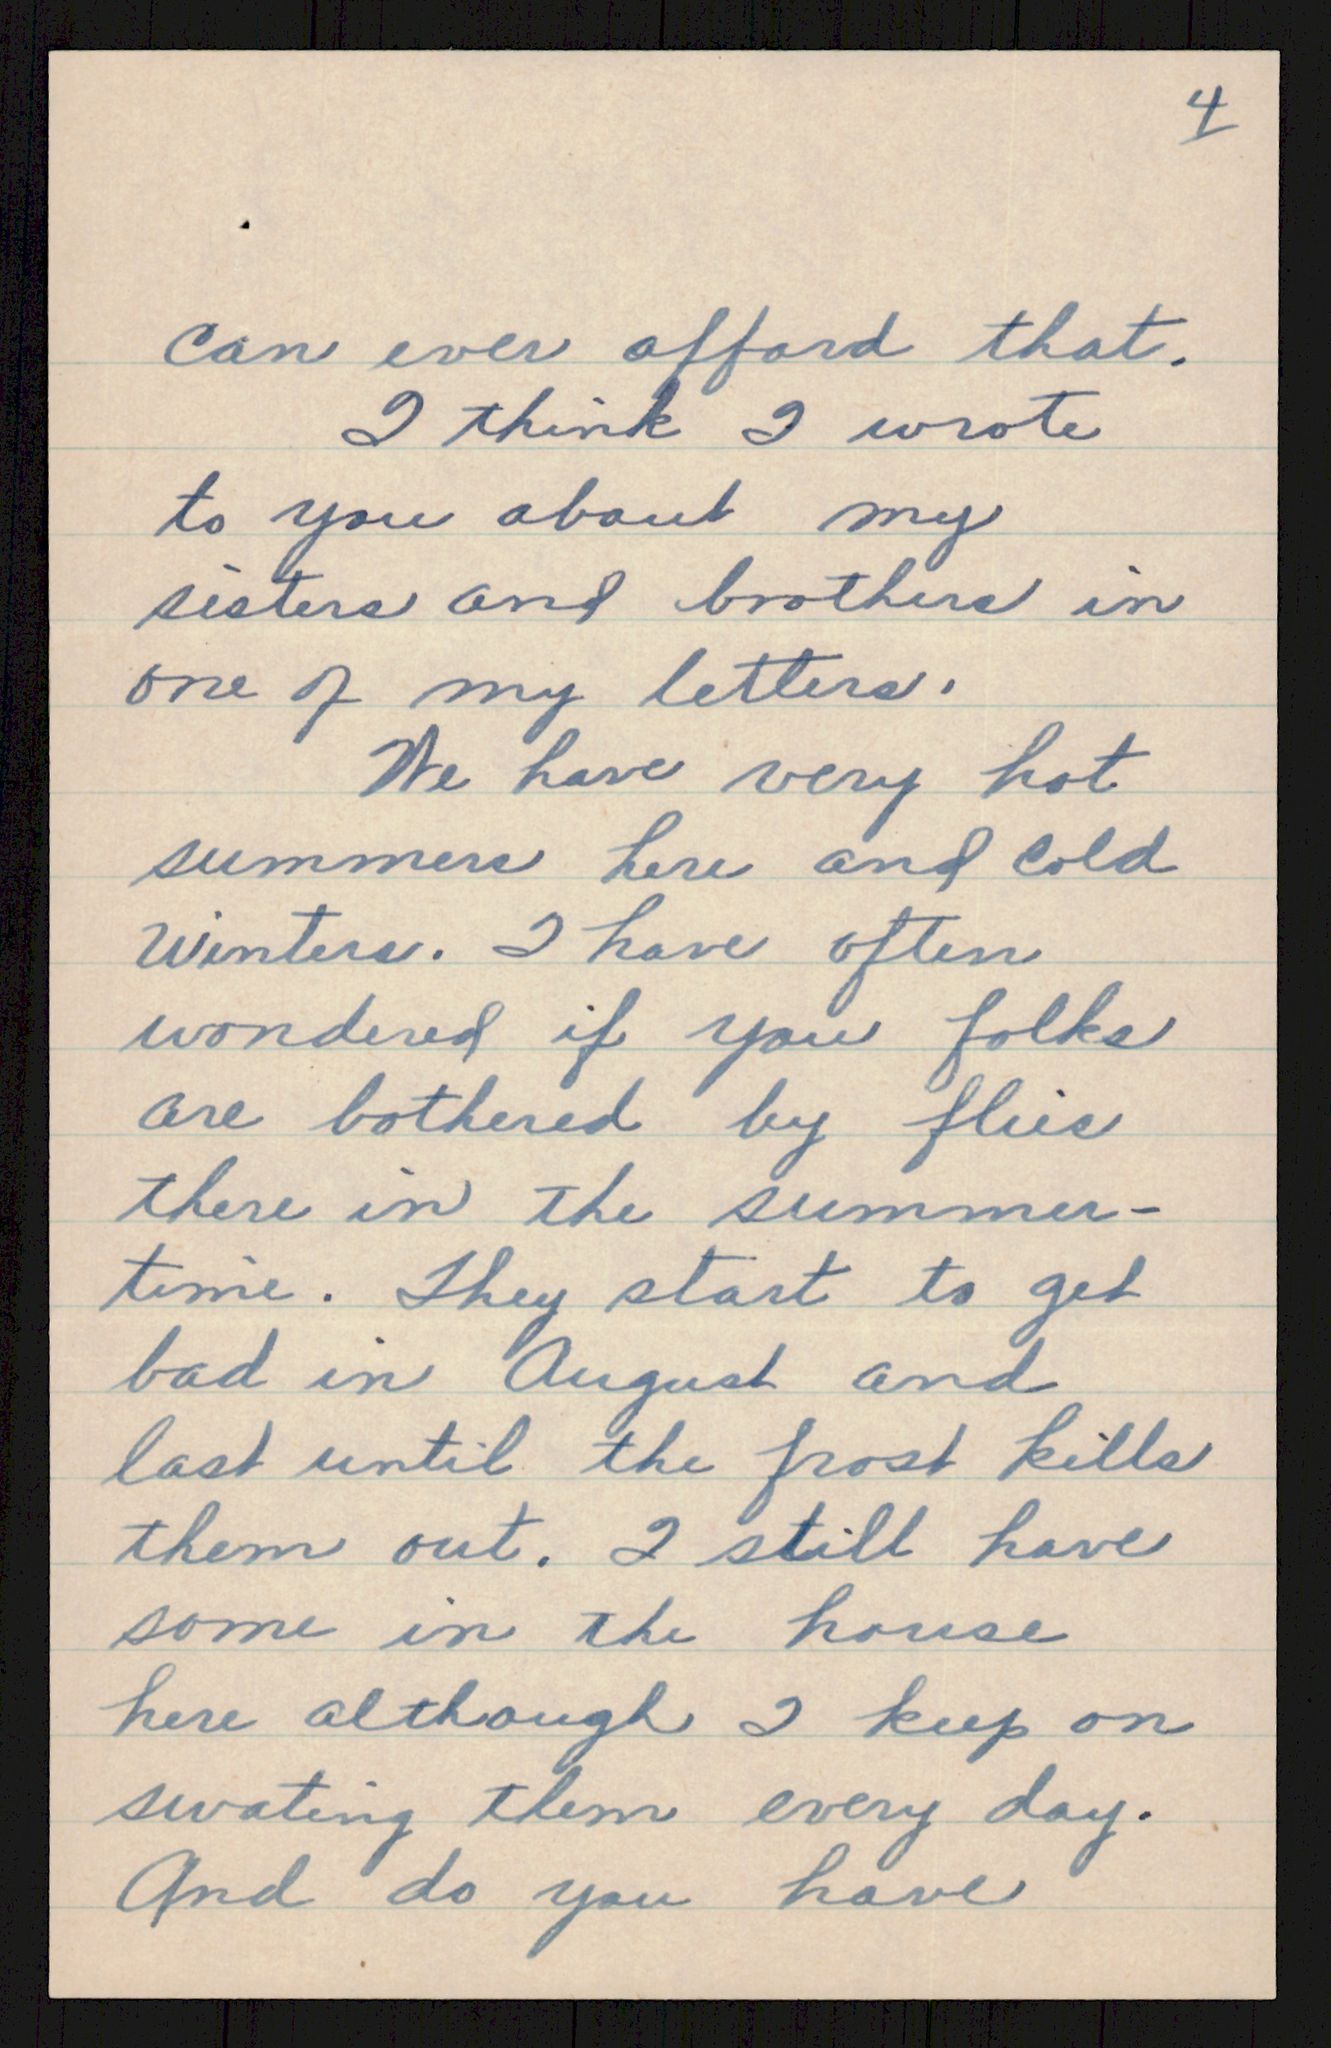 4
can ever afford that.
I think I wrote
to you about my
sisters and brothers in
one of my letters.
We have very hot
summers here and cold
Winters. I have often
wondered if you folks
are bothered by flies
there in the summer-
time. They start to get
bad in August and
last until the frost kills
them out. I still have
some in the house
here although I keep on
swating them every day.
And do you have